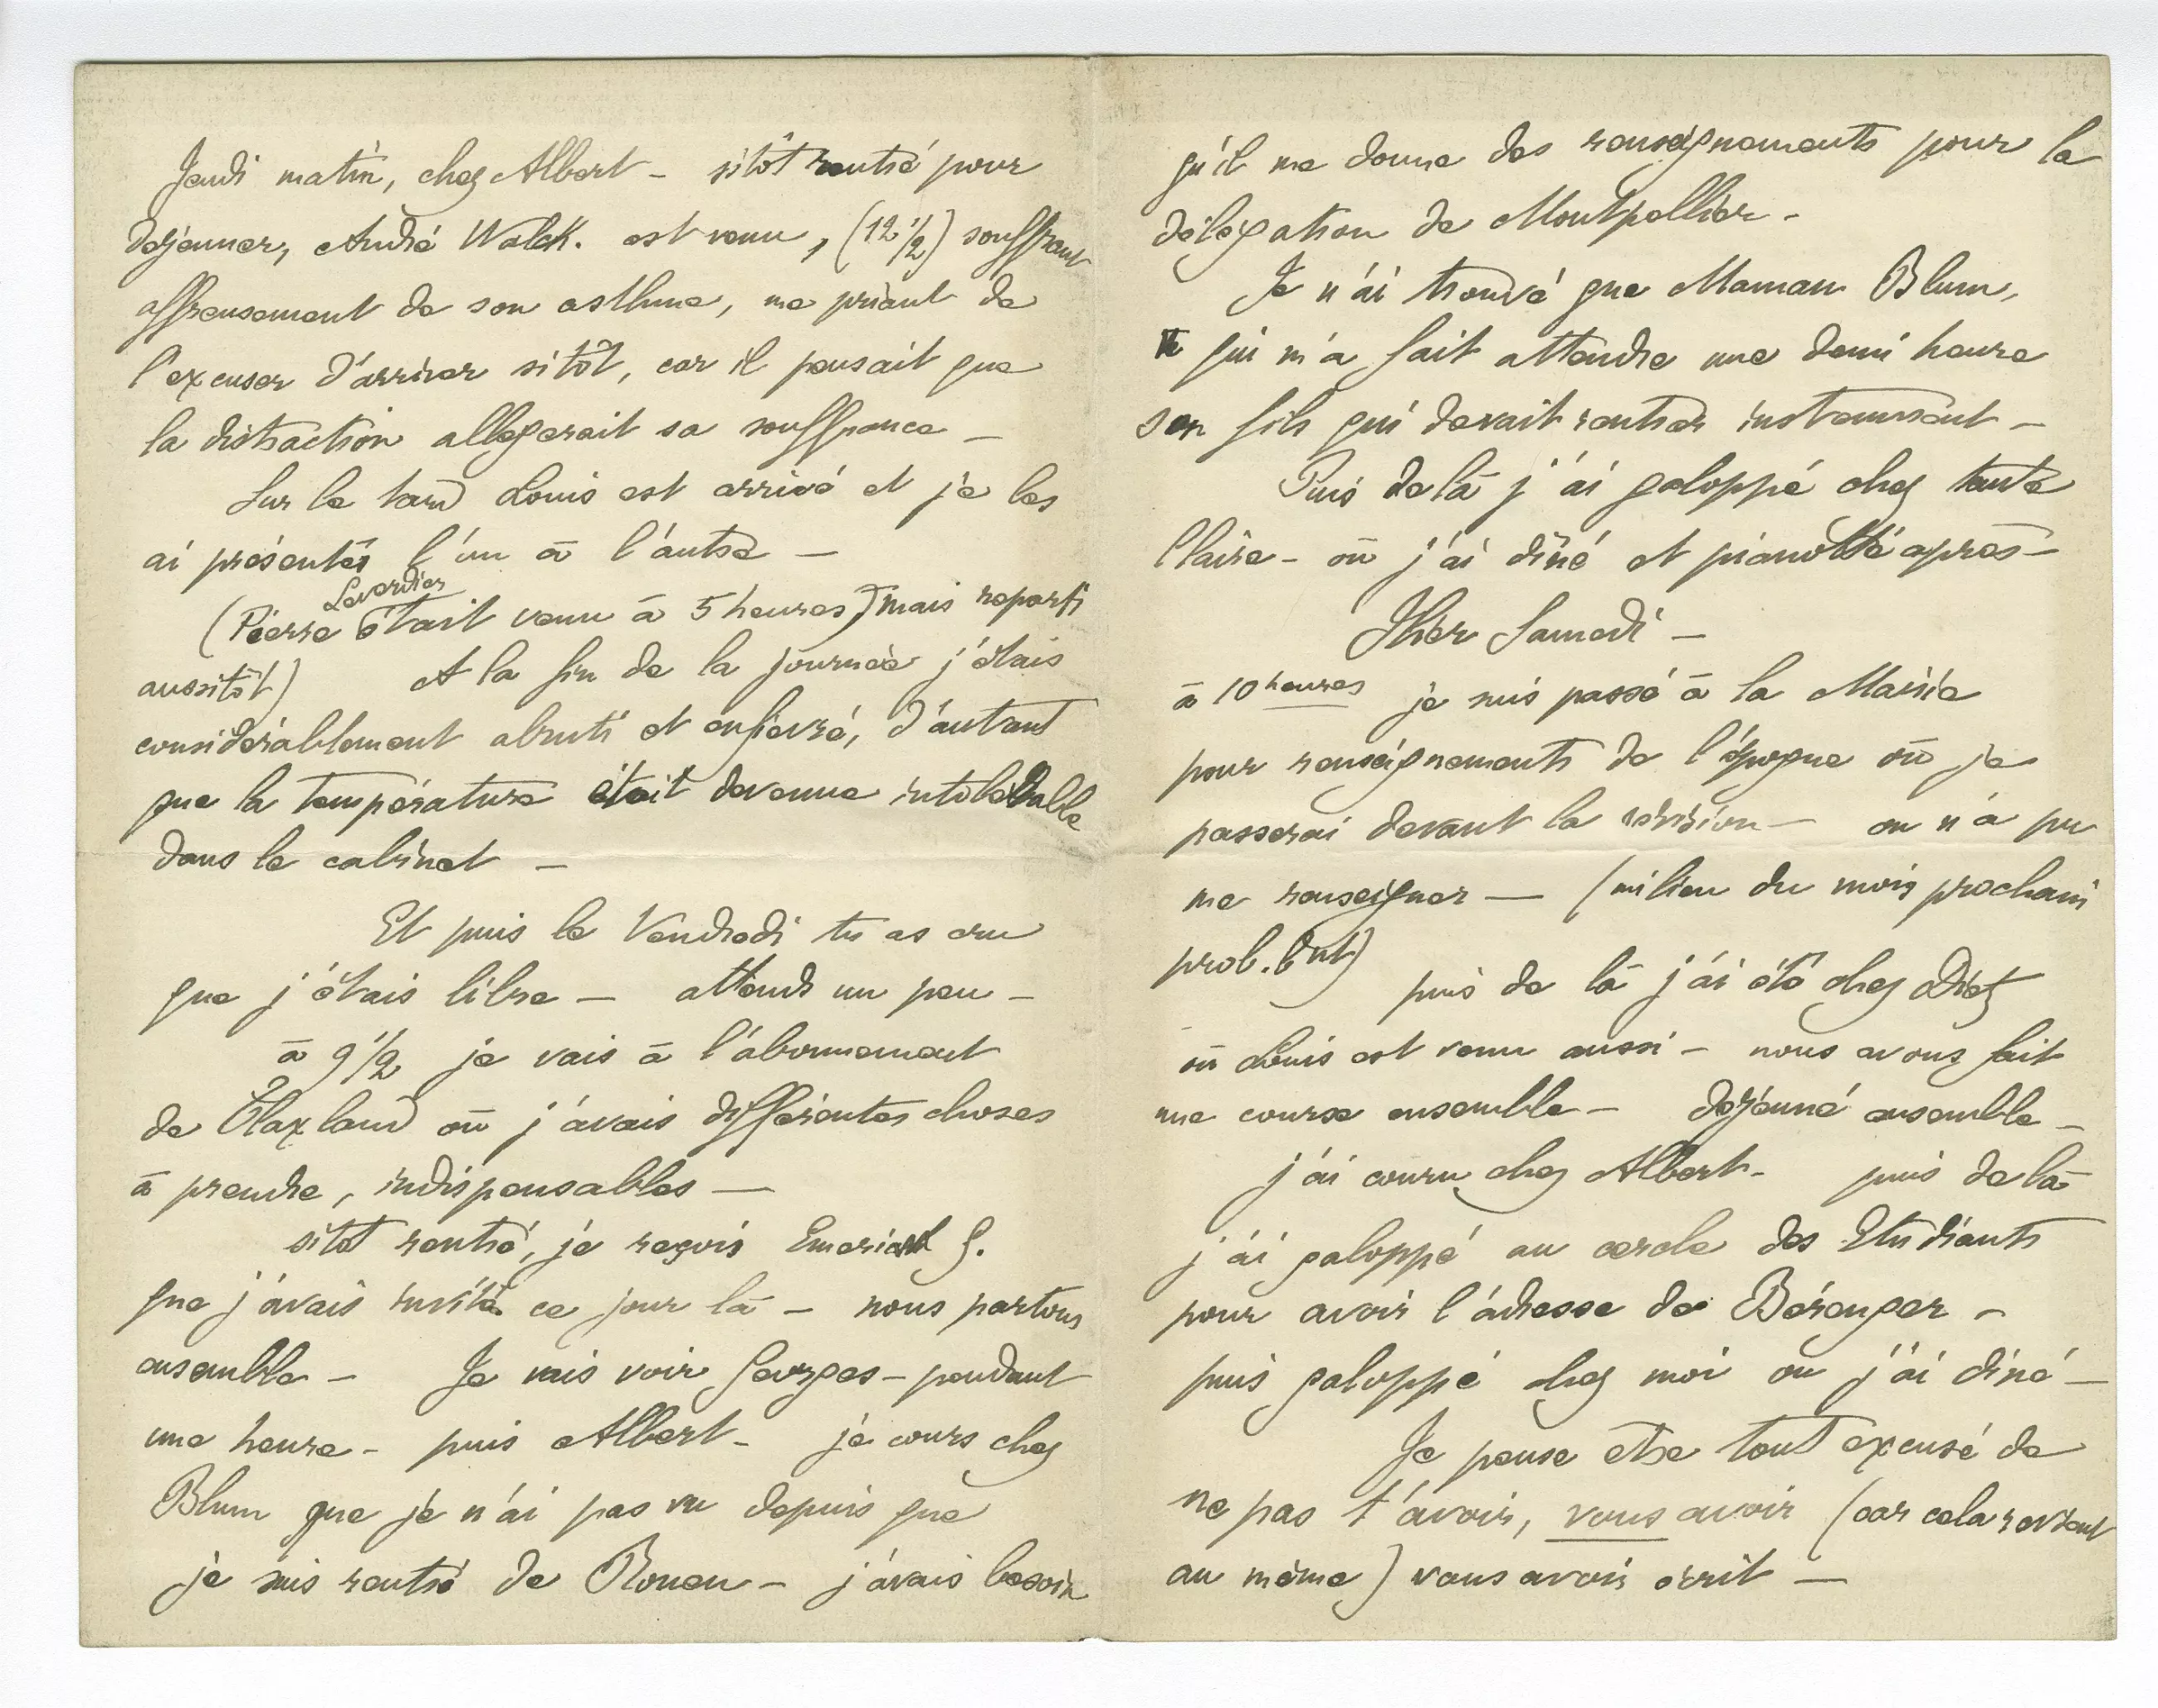 Jeudi matin, chez Albert – sitôt rentré pour
déjeuner, André Walck. est venu, (12 1/2) souffrant
affreusement de son asthme, me priant de
l'excuser d'arriver sitôt, car il pensait que
la distraction allegerait sa souffrance –
Sur le tard Louis est arrivé et je les
ai présentés l'un à l'autre –
Laverdier
(Pierre était venu à 5 heures) mais reparti
aussitôt) A la fin de la journée j'étais
considérablement abruti et enfievré, d'autant
que la température était devenue intolérable
dans le cabinet –
Et puis le Vendredi tu as cru
que j'étais libre – attends un peu –
à 9 1/2 je vais à l'abonnement
de Flaxland où j'avais différentes choses
à prendre, indispensables –
sitôt rentré, je reçois G.
que j'avais invité ce jour là – nous partons
ensemble – Je vais voir Georges – pendant
une heure – puis Albert – je cours chez
Blum que je n'ai pas vu depuis que
je suis rentré de Rouen – j'avais besoin
qu'il me donne des renseignements pour la
délégation de Montpellier –
Je n'ai trouvé que Maman Blum,
qui m'a fait attendre une demi heure
son fils qui devait rentrer instamment –
Puis de là j'ai galoppé chez tante
Claire – où j'ai dîné et pianotté après –
Hier Samedi –
à 10 heures je suis passé à la Mairie
pour renseignements de l'époque où je
passerai devant la révision – on n'a pu
me renseigner – (milieu du mois prochain
prob.bnt) puis de là j'ai été chez Diet
où Louis est venu aussi – nous avons fait
une course ensemble – déjeuné ensemble –
j'ai couru chez Albert – puis de là
j'ai galoppé au cercle des Etudiants
pour avoir l'adresse de Bérenger –
puis galoppé chez moi où j'ai dîné –
Je pense être tout excusé de
ne pas t'avoir, vous avoir (car cela revient
au même) vous avoir écrit –